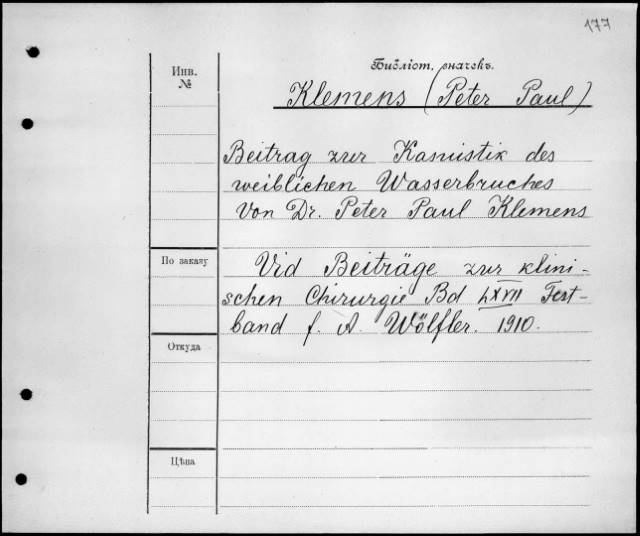 177
Библіот. значекъ.
Инв.
№
Klemens (Peter Paul)
Beitrag zur Kasuistik des
weiblichen Wasserbruches
Von Dr. Peter Paul Klemens
По заказу
Vid Beiträge zur klini-
schen Chirurgie Bd LXVII Fest-
band f. A. Wölfler. 1910.
Откуда
Цѣна